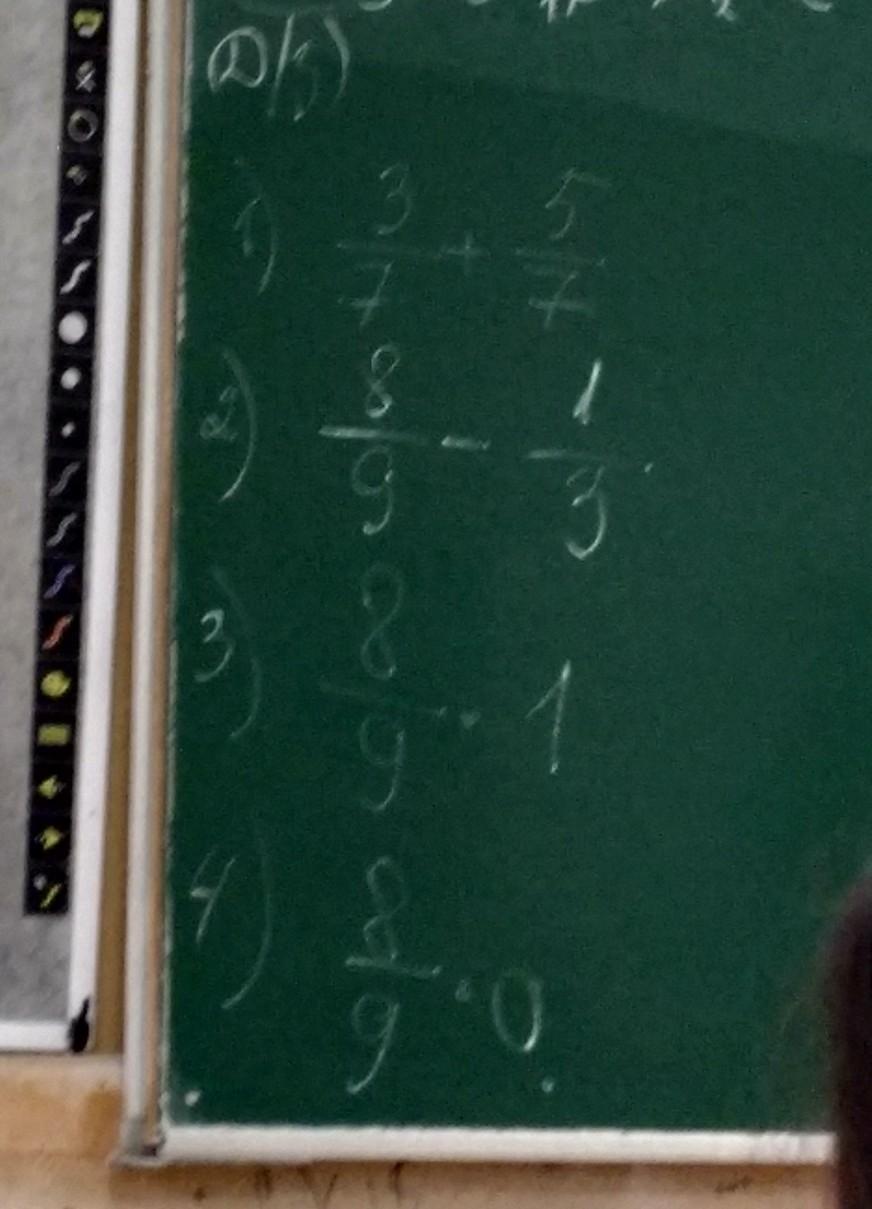 1) 3/7 + 5/7
2) 8/9 - 1/3
3) 8/9 · 1
4) 8/9 · 0